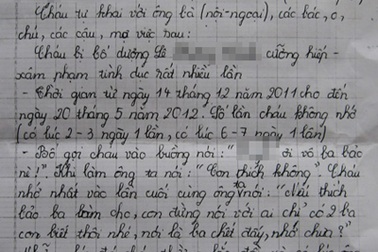 Cháu tự khai với ông bà (nội-ngoại), các bác, o,
chú, các cậu, mợ việc sau:
Cháu bị bố dượng cưỡng hiếp -
xâm phạm tình dục rất nhiều lần
- Thời gian từ ngày 14 tháng 12 năm 2011 cho đến
ngày 20 tháng 5 năm 2012. Số lần cháu không nhớ
(có lúc 2-3 ngày 1 lần, có lúc 6-7 ngày 1 lần)
- Bố gọi cháu vào buồng nói: " ơi vô ba bảo
nì!". Khi làm ông ta nói: "Con thích không". Cháu
nhớ nhất vào lần cuối cùng ông nói: "nếu thích
bảo ba làm cho, con đừng nói với ai chỉ có 2 ba
con biết thôi nhé, nói là ba chết đấy, nhớ chưa?"